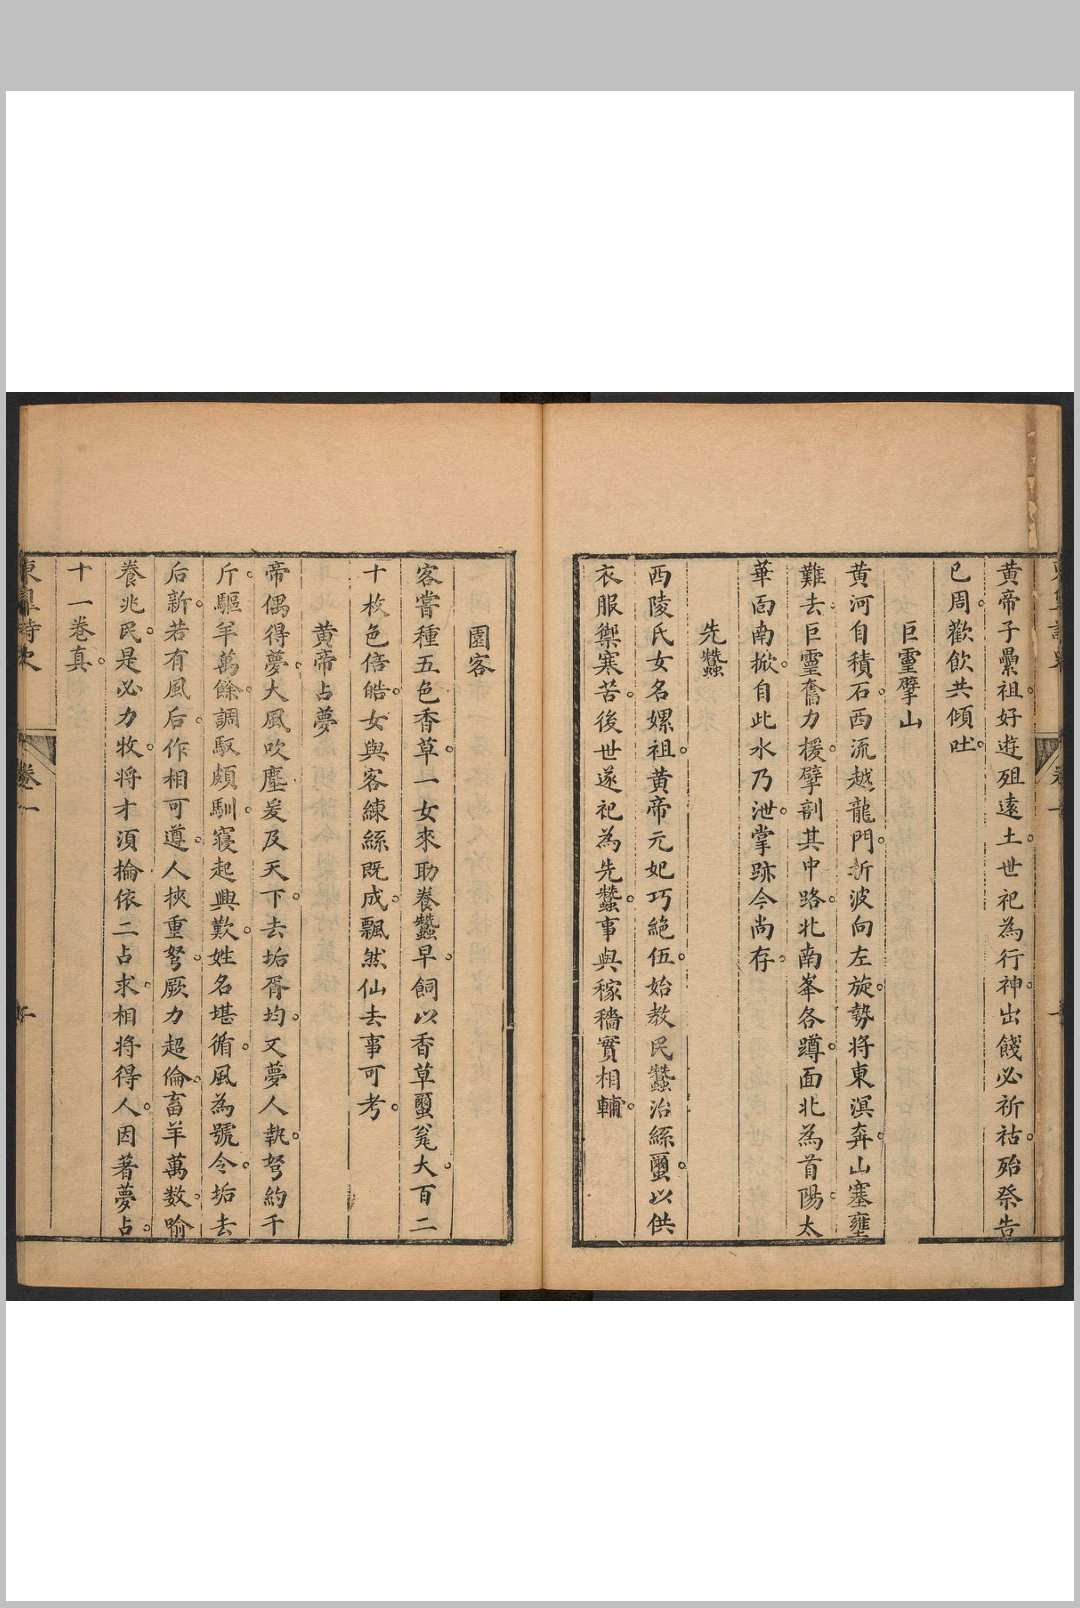 黄帝子纍祖好遊殂遠土世祀為行神出餞必祈祜殆祭告
已周歡飲共傾吐
巨靈擘山
黄河自積石西流越龍門折波向左旋勢將東溟奔山塞壅
難去巨靈奮力援擘剖其中路北南峯各蹲面北為首陽太
華面南掀自此水乃泄掌跡今尚存
先蠶
西陵氏女名嫘祖黄帝元妃巧絶伍始教民蠶治絲䘉以供
衣服禦寒苦後世遂祀為先蠶事與稼穡實相輔
園客
客嘗種五色香草一女來助養蠶早飼以香草䘉瓮大百二
十枚色倍皓女與客練絲既成飄然仙去事可考
黄帝占夢
帝偶得夢大風吹塵爰及天下去垢胥均又夢人執弩約千
斤驅羊萬餘調馭頗馴寢起興歎姓名堪循風為號令垢去
后新若有風后作相可遵人挾重弩厥力超倫畜羊萬数喻
養兆民是必力牧将才湏掄依二占求相将得人因著夢占
十一巻真
卷一